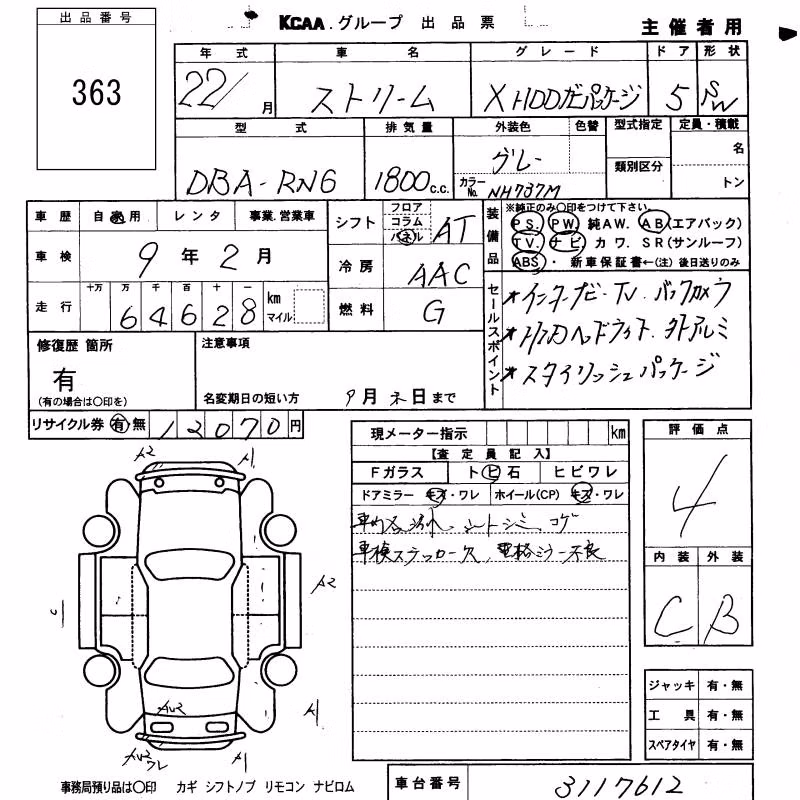 出品番号
363
KCAA.グループ 出品票
主催者用
年式 車名 グレード ドア 形状
22/ 月 ストリーム X HDDナビパッケージ 5 SW
型式 排気量 外装色 色替 型式指定 定員・積載
DBA-RN6 1800 c.c. グレー 類別区分 名
カラーNo. NH737M トン
車歴 自家用 レンタ 事業.営業車
車検 9年2月
走行 十万 万 千 百 十 一
64628 km マイル
シフト フロア コラム パネル AT
冷房 AAC
燃料 G
装備品
※純正のみ〇印をつけて下さい。
PS. PW. 純AW. AB(エアバック)
TV. ナビ カワ. SR(サンルーフ)
ABS・ 新車保証書←(注)後日送りのみ
セールスポイント
*インターナビ・TV.バックカメラ
*HIDヘッドライト.外アルミ
*スタイリッシュパッケージ
修復歴 箇所
有
(有の場合は〇印を)
注意事項
名変期日の短い方 9月末日まで
リサイクル券 有・無 12070円
現メーター指示 km
【査定員記入】
Fガラス トビ石 ヒビワレ
ドアミラー キズ・ワレ ホイール(CP) キズ・ワレ
車内汚れ、シートシミ、コゲ
車検ステッカー欠、電格ミラー不良
評価点
4
内装 外装
C B
A2 A1
A2
A1
AU2
AU2 ワレ A1
ジャッキ 有・無
工具 有・無
スペアタイヤ 有・無
事務局預り品は〇印 カギ シフトノブ リモコン ナビロム
車台番号 3117612